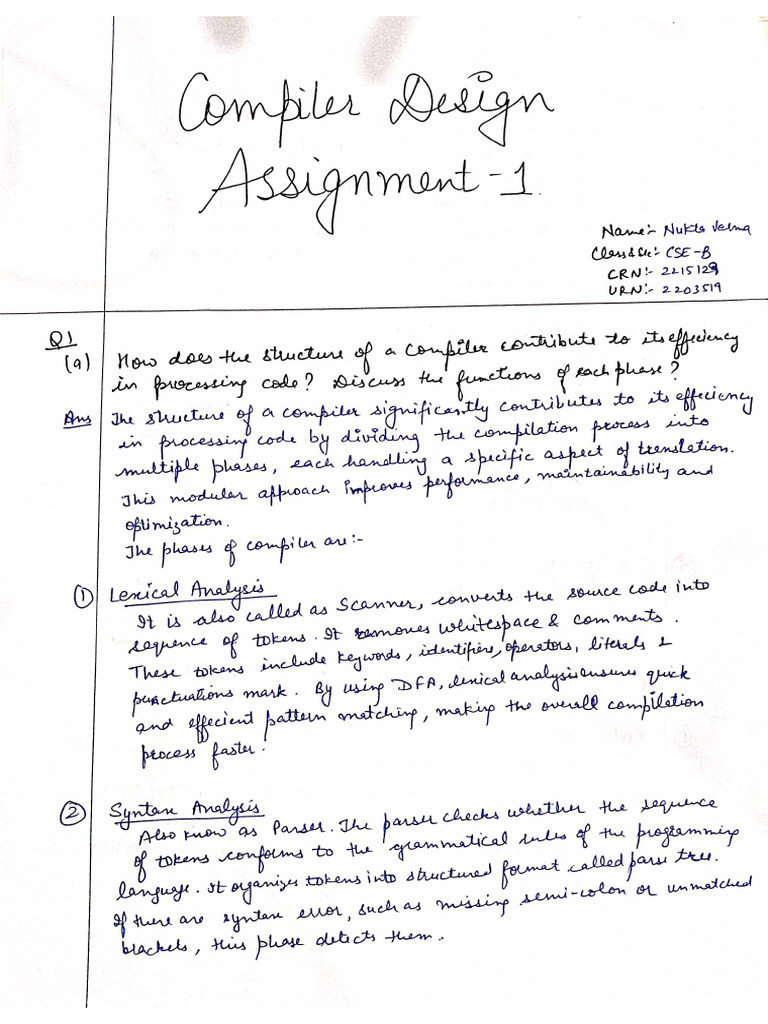 Compiler Design
Assignment-1.
Name:- Nukta Verma
Class & Sec:- CSE-B
CRN:- 2215129
URN:- 2203519
Q1
(a) How does the structure of a compiler contribute to its effeciency
in processing code? Discuss the functions of each phase?
Ans The structure of a compiler significantly contributes to its effeciency
in processing code by dividing the compilation process into
multiple phases, each handling a specific aspect of translation.
This modular approach improves performance, maintainability and
optimization.
The phases of compiler are:-
① Lexical Analysis
It is also called as Scanner, converts the source code into
sequence of tokens. It removes whitespace & comments.
These tokens include keywords, identifiers, operators, literals &
punctuations mark. By using DFA, lexical analysis ensures quick
and effecient pattern matching, making the overall compilation
process faster.
② Syntax Analysis
Also know as Parser. The parser checks whether the sequence
of tokens conforms to the grammatical rules of the programming
language. It organizes tokens into structured format called parse tree.
If there are syntax error, such as missing semi-colon or unmatched
brackets, this phase detects them.